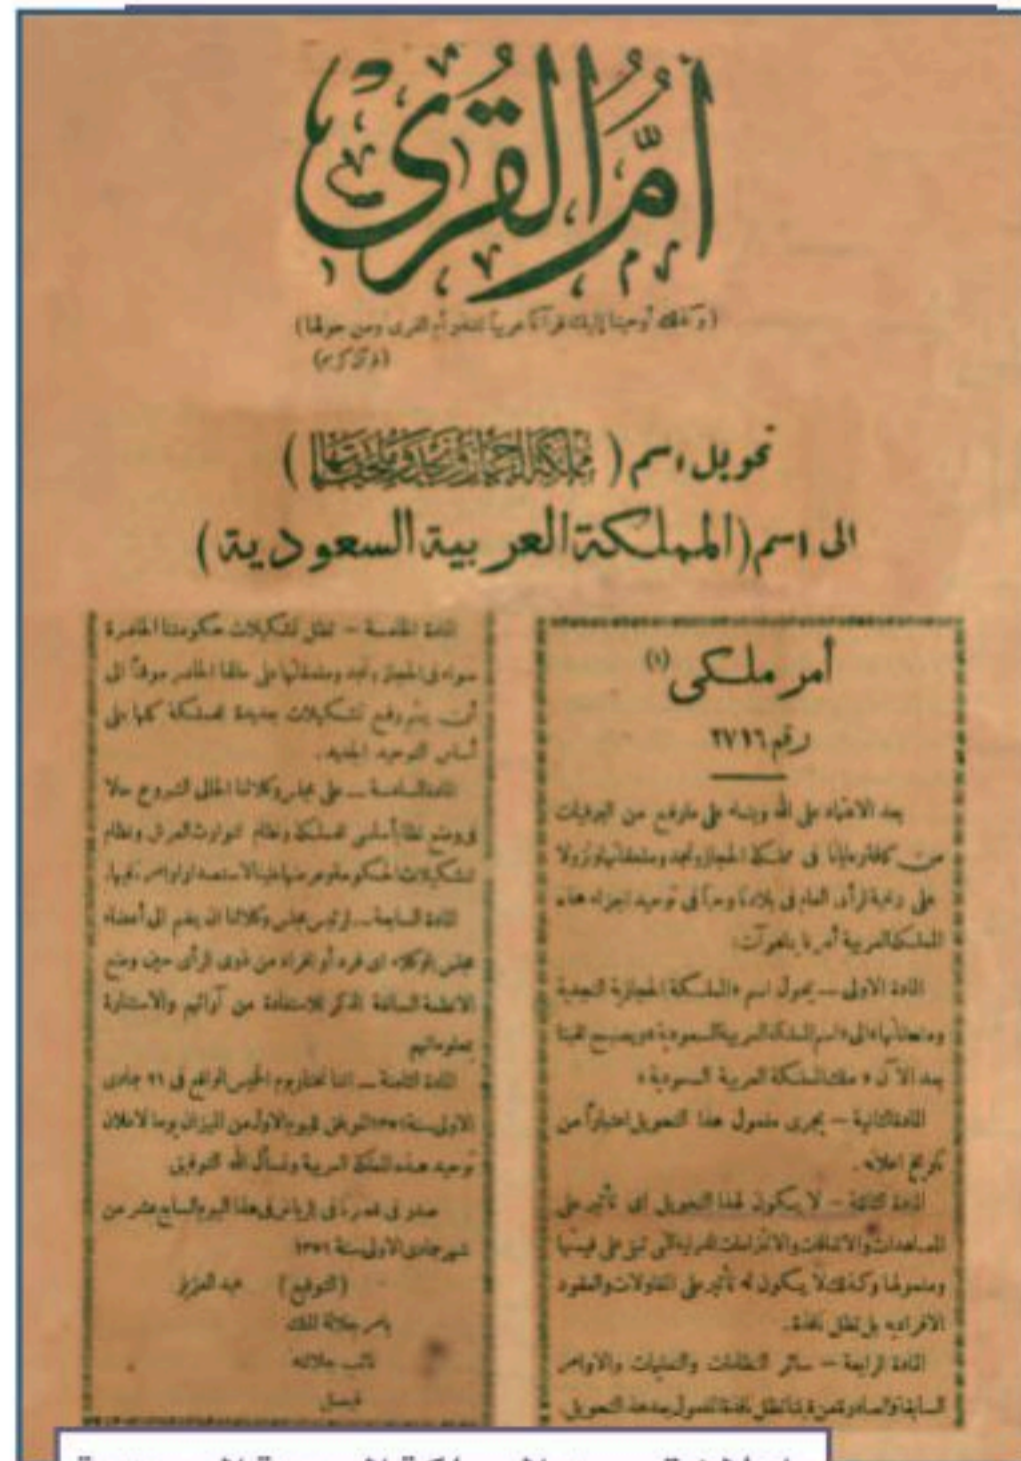 أُمُّ القُرَىٰ
(وكذلك أوحينا إليك قرآناً عربياً لتنذر أم القرى ومن حولها)
(قرآن كريم)
تحويل اسم (مملكة الحجاز ونجد وملحقاتها)
الى اسم (المملكة العربية السعودية)
أمر ملكى (١)
رقم ٢٧١٦
بعد الاعتماد على الله وبناء على مارفع من البرقيات
من كافة رعايانا فى مملكة الحجاز ونجد وملحقاتها ونزولا
على رغبة الرأى العام فى بلادنا وحباً فى توحيد اجزاء هذه
المملكة العربية أمرنا بما هو آت:
المادة الاولى — يحول اسم «المملكة الحجازية النجدية
وملحقاتها» الى «اسم المملكة العربية السعودية» ويصبح لقبنا
بعد الآن « ملك المملكة العربية السعودية»
المادة الثانية — يجرى مفعول هذا التحويل اعتباراً من
تاريخ اعلانه .
المادة الثالثة — لا يكون لهذا التحويل اى تأثير على
المعاهدات والاتفاقات والالتزامات الدولية التى تبقى على قيمتها
ومفعولها وكذلك لا يكون له تأثير على المقاولات والعقود
الافرادية بل تظل نافذة.
المادة الرابعة — سائر النظامات والتعليمات والاوامر
السابقة والصادرة من قبلنا تظل نافذة المفعول بعد هذا التحويل.
المادة الخامسة — تظل تشكيلات حكومتنا الحاضرة
سواء فى الحجاز ونجد وملحقاتها على حالها الحاضر موقتاً الى
أن يتم وضع تشكيلات جديدة للمملكة كلها على
أساس التوحيد الجديد.
المادة السادسة — على مجلس وكلائنا الحالى الشروع حالا
فى وضع نظام أساسى للمملكة ونظام لتوارث العرش ونظام
لتشكيلات الحكومة وعرضها علينا لاستصدار اوامرنا فيها.
المادة السابعة — لرئيس مجلس وكلائنا ان يضم الى أعضاء
مجلس الوكلاء اى فرد أو افراد من ذوى الرأى حين وضع
الانظمة السالفة الذكر للاستفادة من آرائهم والاستنارة
بمعلوماتهم
المادة الثامنة — اننا نختار يوم الخميس الواقع فى ٢١ جمادى
الاولى سنة ١٣٥١ الموافق لليوم الاول من الميزان يوما لاعلان
توحيد هذه المملكة العربية ونسأل الله التوفيق
صدر فى قصرنا فى الرياض فى هذا اليوم السابع عشر من
شهر جمادى الاولى سنة ١٣٥١
(التوقيع) عبد العزيز
بامر جلالة الملك
نائب جلالته
فيصل